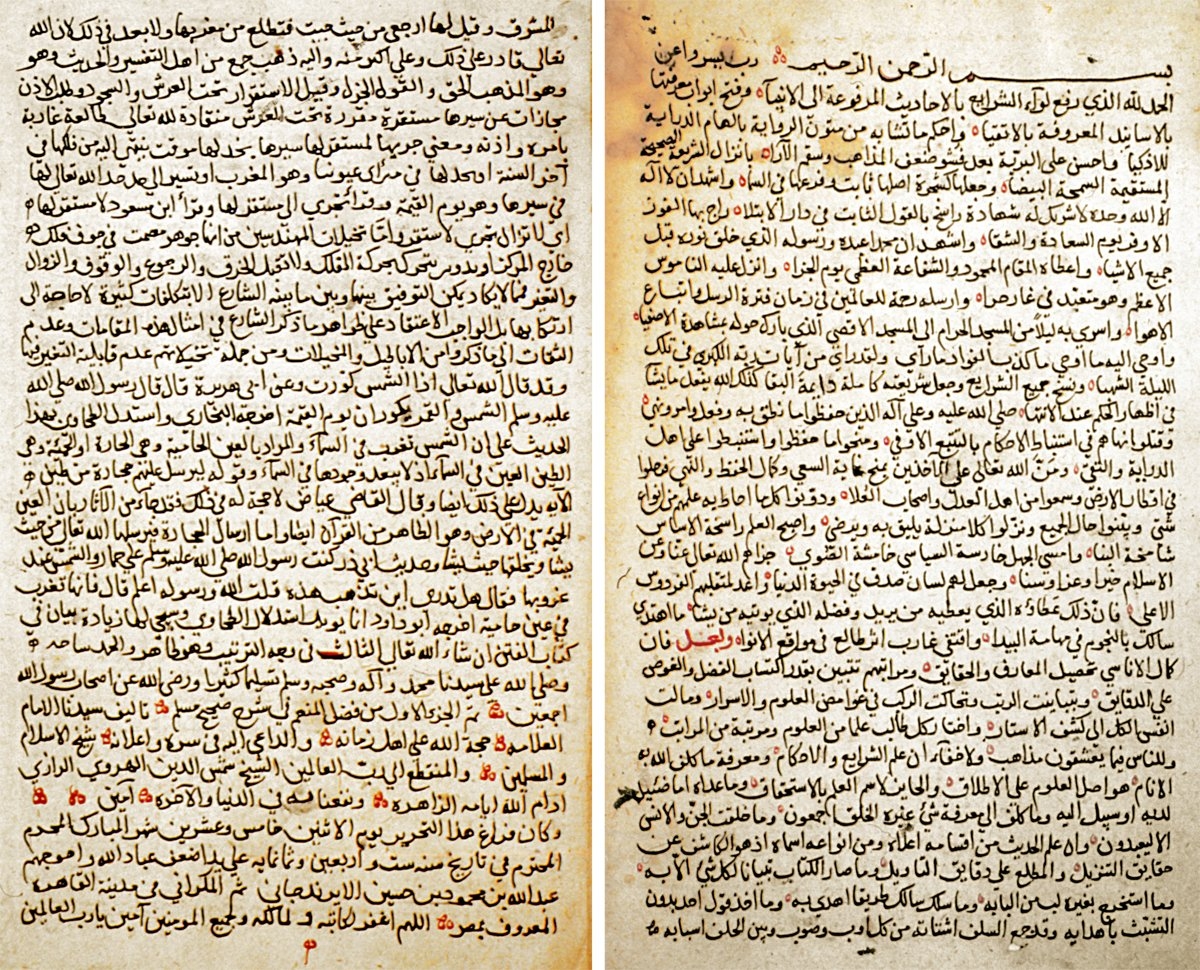 بسم الله الرحمن الرحيم رب يسر واعن
الحمد لله الذي رفع لوآء الشرايع بالاحاديث المرفوعة الى الانبيآء وفتح ابواب معرفتها
بالاسانيد المعروفة بالاتقيآء واحكم ما تشابه من متون الرواية بالهام الدراية
للاذكيآء واحسن على البرية بعد فشو ضعف المذاهب وسقم الآراء بانزال الشريعة الصحيحة
المستقيمة السمحة البيضآء وجعلها كشجرة اصلها ثابت وفرعها في السمآء واشهد ان لا اله
الا الله وحده لا شريك له شهادة راسخ بالقول الثابت في دار الابتلاء راج بها الفوز
الاوفر يوم السعادة والشقآء واشهد ان محمدا عبده ورسوله الذي خلق نوره قبل
جميع الاشيآء واعطاه المقام المحمود والشفاعة العظمى يوم الجزاء وانزل عليه الناموس
الاعظم وهو متعبد في غار حرا وارسله رحمة للعالمين في زمان فترة الرسل واتباع
الاهوآء واسرى به ليلا من المسجد الحرام الى المسجد الاقصى الذي بارك حوله بمشاهدة الاصفيآء
واوحى اليه ما اوحى ما كذب الفواد ما رأى ولقد راى من آيات ربه الكبرى في تلك
الليلة الشهبآء ونسخ جميع الشرايع وجعل شريعته كاملة دايمة البقآ كذلك الله يفعل ما يشآ
في اظهار الحكم عند الانتهآء صلى الله عليه وعلى آله الذين حفظوا ما نطق به
وقتلوا انفاهم في استنباط الاحكام بالتتبع الاوفى ومنحوا ما حفظوا واستنبطوا على اهل
الدراية والنهى ومن الله تعالى على الآخذين بمنح غاية السعي وكمال الحفظ والنهى فرحلوا
في اقطار الارض وسمعوا من اهل العدل واصحاب العلاء ودونوا كلما احاط به علمهم من انواع
شتى وبينوا حال الجميع ونزلوا كلا منزلة يليق به ويرضى واصبح العلم راسخة الاساس
شامخة البنآء وامسى الجهل دارسة الصياصي خامشة القصوى جزاهم الله تعالى عنا وعن
الاسلام خيرا وعزا وسنآء وجعل لهم لسان صدق في الحيوة الدنيا واعد لمنقلبهم الفردوس
الاعلى فان ذلك عطاؤه الذي يعطيه من يريد وفضله الذي يوتيه من يشآء ما اهتدى
سالك بالنجوم في مهامة البيدآء واقتفى غارب اثر طالع في مواقع الانوآء وبعد فان
كمال الاناسي تحصيل المعارف والحقايق ومراتبهم تتبين بقدر اكتساب الفضل والغوص
على الدقايق وتباينت الرتب وتحاكت الركب في غوامض العلوم والاسرار ومالت
النفس الكل الى كشف الاستار واختار كل طالب علما من العلوم ومرتبة من المراتب
وللناس فيما يعشقون مذاهب ولا خفآء ان علم الشرايع والاحكام ومعرفة ما كلف الله به
الانام هو اصل العلوم على الاطلاق والحايز لاسم العلم بالاستحقاق وما عداه اما ضئيل
لديه او سبيل اليه وما كلف الى معرفة شئ غيره الخلق اجمعون وما خلقت الجن والانس
الا ليعبدون وان علم الحديث من اقسامه اعلاه ومن انواعه اسماه اذ هو الكاشف عن
حقايق التنزيل والمطلع على دقايق التاويل وما صار الكتاب تبيانا لكل شئ الا به
وما استخرج بغيره لب من البابه وما سلك سالك طريقا اهدى به وما اخذ قول احد بدون
التشبث باهدابه وقد جمع السلف اشتاته من كل اوب وصوب وبين الخلف اسبابه
المشرق وقيل لها ارجعي من حيث جئت فتطلع من مغربها ولا بعد في ذلك لان الله
تعالى قادر على ذلك وعلى اكثر منه واليه ذهب جمع من اهل التفسير والحديث وهو
وهو المذهب الحق والقول الجزل وقيل الاستقرار تحت العرش والسجود وطلب الاذن
مجازات عن سيرها مستقرة مقررة تحت العرش منقادة لله تعالى طالعة غاربة
بامره واذنه ومعنى جريها لمستقر لها سيرها بحد لها موقت ينتهى اليه من فلكها في
آخر السنة او بحد لها في مرأى عيوننا وهو المغرب او تسير الى حد حد الله تعالى لها
في سيرها وهو يوم القيمة وقرأ ابن مسعود لا مستقر لها
اي لا تزال تجري لا تستقر واما تخيلات المهندسين من انها جوهر مصمت في جوف فلك
خارج المركز او تدوير يتحرك بحركة الفلك ولا تقبل الخرق والرجوع والوقوف والزوال
والتغير فمما لا يكاد يمكن التوفيق بينها وبين ما بينه الشارع الا بتكلفات كثيرة لا حاجة الى
ارتكابها بل الواجب الاعتقاد على ظواهر ما ذكر الشارع في امثال هذه المقامات وعدم
التفات الى ما ذكروا من الاباطيل والتخيلات ومن جملة تخيلاتهم عدم قابلية التغير فيها
وقد قال الله تعالى اذا الشمس كورت وعن ابى هريرة قال قال رسول الله صلى الله
عليه وسلم الشمس والقمر يكوران يوم القيمة اخرجه البخاري واستدل الطحاوي بهذا
الحديث على ان الشمس تغرب في السمآء والمراد بالعين الحامية وهي الحارة او الحمئة وهي
الطين العين في السمآء اذ لا يبعد وجودها في السمآء وقوله ليرسل عليهم حجارة من طين
الآية يدل على ذلك ايضا وقال القاضي عياض لا حجة له في ذلك فقد جآء من الآثار بان العين
الحمئة في الارض وهو الظاهر من القرآن ايضا واما ارسال الحجارة فيرسلها الله تعالى من حيث
يشآ ويخلقها حيث يشآ وحديث ابي ذر كنت رسول الله صلى الله عليه وسلم على حمار والشمس عند
غروبها فقال هل تدرى اين تذهب هذه قلت الله ورسوله اعلم قال فانها تغرب
في عين حامية اخرجه ابو داود انا يويد استدلال الطحاوي وسيجي لها زيادة بيان في
كتاب الفتن ان شاء الله تعالى الثالث في وجه الترتيب وهو ظاهر والحمد
وصلى الله على سيدنا محمد وآله وصحبه وسلم تسليما كثيرا ورضى الله عن اصحاب رسول الله
اجمعين تم الجزء الاول من فضل المنعم في شرح صحيح مسلم تاليف سيدنا الامام
العلامه حجة الله على اهل زمانه والداعي اليه في سره واعلانه شيخ الاسلام
والمسلمين والمنقطع الى رب العالمين الشيخ شمس الدين الهروي الرازي
ادام الله ايامه الزاهده ونفعنا به في الدنيا والآخره آمين
وكان فراغ هذا التحرير يوم الاثنين خامس وعشرين شهر المبارك المحرم
المحترم في تاريخ سنه ست واربعين وثمانمايه على يد اضعف عباد الله واحوجهم
عبد الله بن محمود بن حسين الايرندجاني ثم المكراني في مدينة القاهره
المعروف بمصر اللهم اغفر لكاتبه ولمالكه ولجميع المومنين آمين يا رب العالمين